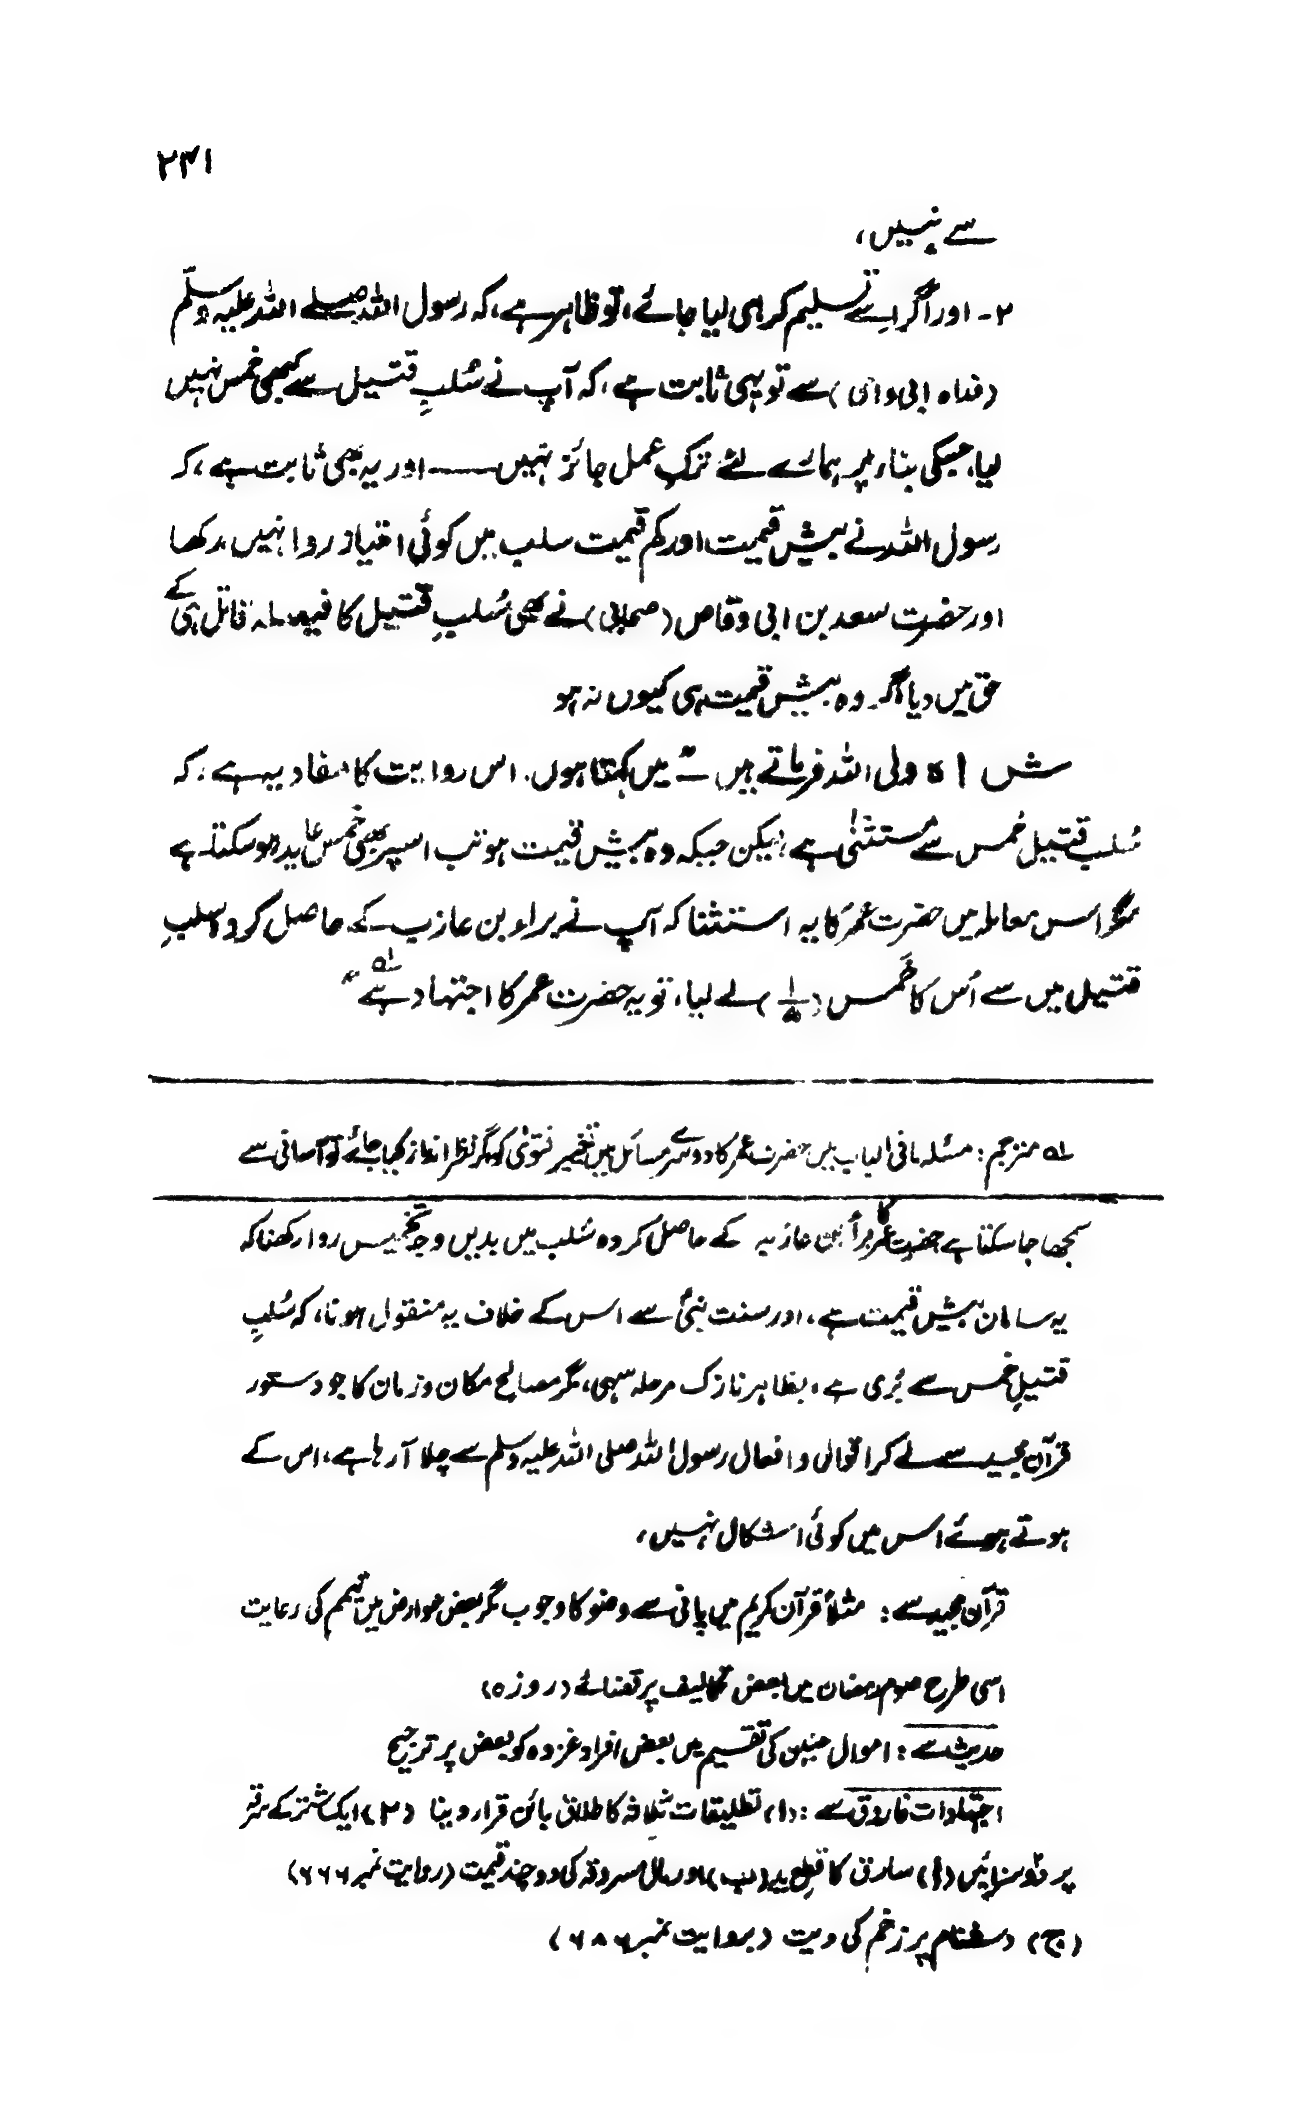 ۲۴۱
سے نہیں،
۲۔ اور اگر اسے تسلیم کر ہی لیا جائے، تو ظاہر ہے، کہ رسول اللہ صلے اللہ علیہ وسلّم
(فداہ ابی وامی) سے تو یہی ثابت ہے، کہ آپ نے سُلبِ قتیل سے کبھی خمس نہیں
لیا، جسکی بناء پر ہمارے لئے ترکِ عمل جائز نہیں —— اور یہ بھی ثابت ہے، کہ
رسول اللہ نے بیش قیمت اور کم قیمت سلب میں کوئی امتیاز روا نہیں رکھا
اور حضرت سعد بن ابی وقاص (صحابی) نے بھی سُلبِ قتیل کا فیصلہ قاتل ہی کے
حق میں دیا اگر وہ بیش قیمت ہی کیوں نہ ہو
شاہ ولی اللہ فرماتے ہیں :- "میں کہتا ہوں. اس روایت کا مفاد یہ ہے، کہ
سُلبِ قتیل خُمس سے مُستثنٰی ہے؛ لیکن جبکہ وہ بیش قیمت ہو تب اسپر بھی خُمس عاید ہو سکتا ہے
مگر اس معاملہ میں حضرت عمرؓ کا یہ استثنا کہ آپ نے براء بن عازب کے حاصل کردہ سلبِ
قتیل میں سے اُس کا خُمس (۱/۵) لے لیا، تو یہ حضرت عمر کا اجتہاد ہے"ؔ ۱ه
۱ه مترجم: مسئلہ مافی الباب میں حضرت عمر کا دوسرے مسائل میں تغییر فتویٰ کو مگر نظر انداز کیا جائے تو آسانی سے
سمجھا جا سکتا ہے حضرت عمر کا برأ بن عازب کے حاصل کردہ سُلب میں بدیں وجہ تخمیس روا رکھنا کہ
یہ سامان بیش قیمت ہے، اور سنت نبیؐ سے اس کے خلاف یہ منقول ہونا، کہ سُلبِ
قتیل خمس سے بُری ہے، بظاہر نازک مرحلہ سہی، مگر مصالح مکان و زمان کا جو دستور
قرآن مجید سے لے کر اقوال و افعال رسول اللہ صلی اللہ علیہ وسلم سے چلا آ رہا ہے، اس کے
ہوتے ہوئے اس میں کوئی اشکال نہیں،
قرآن مجید سے: مثلاً قرآن کریم میں پانی سے وضو کا وجوب مگر بعض عوارض میں تیمم کی رعایت
اسی طرح صوم رمضان میں بعض تکالیف پر قضائے (روزہ)
حدیث سے: اموال حنین کی تقسیم میں بعض افراد غزوہ کو بعض پر ترجیح
اجتہادات فاروق سے: (۱) تطلیقات ثلاثہ کا طلاق بائن قرار دینا (۲) ایک شتر کے سرقہ
پر دو سزائیں (أ) سارق کا قطع ید (ب) اور مال مسروقہ کی دو چند قیمت (روایت نمبر ۶۶۶)
(ج) دشنام پر زخم کی دیت (بروایت نمبر ۶۸۶)